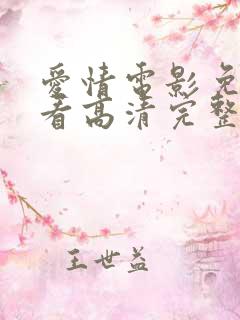 愛情電影免
看高清完整
王世益